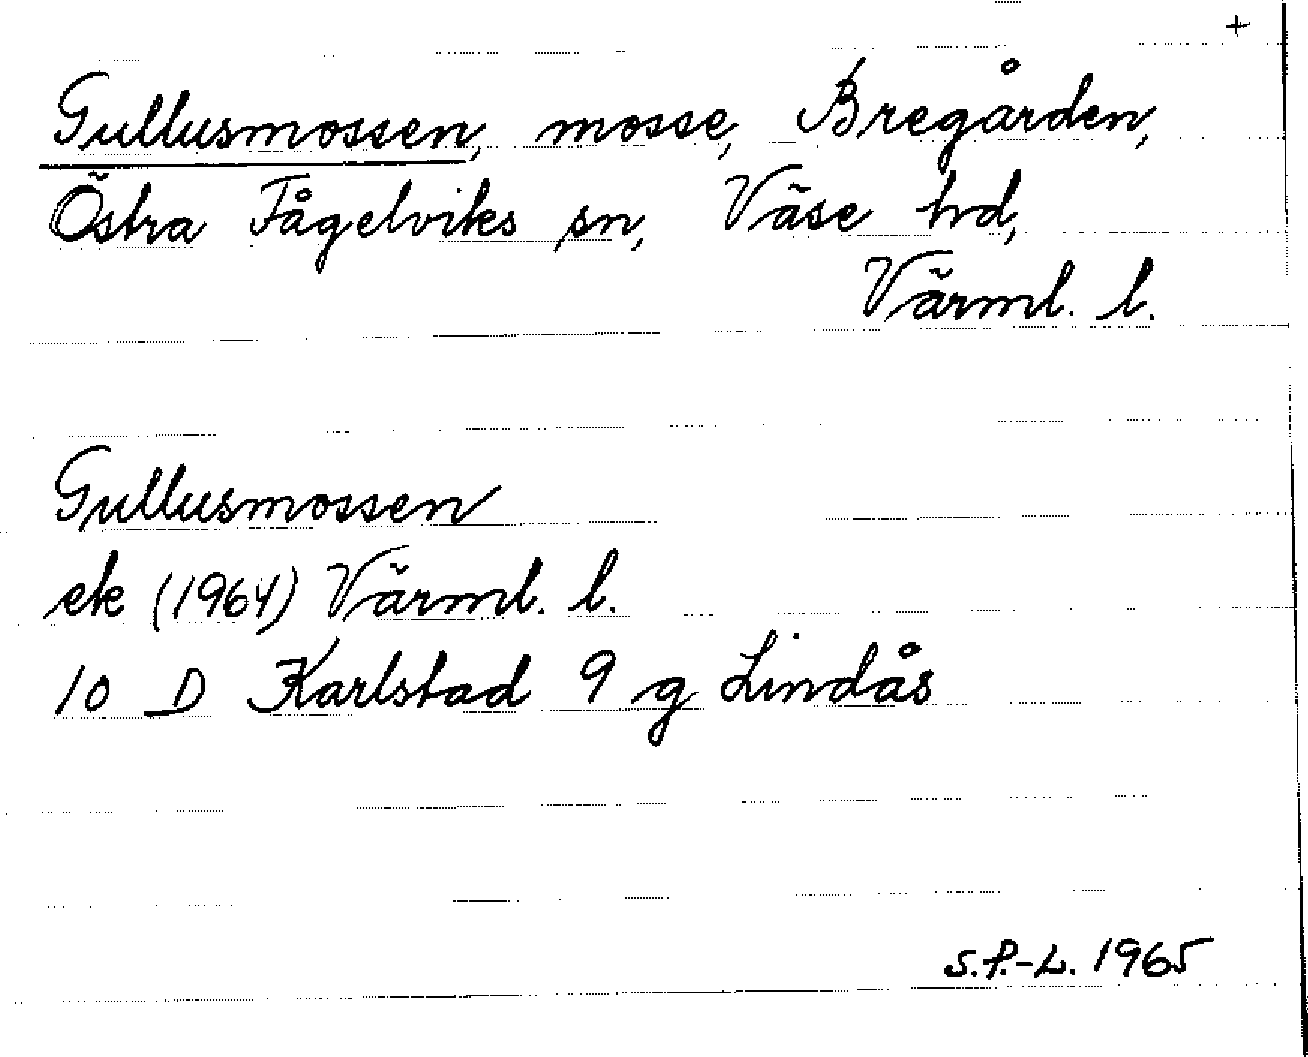 +
Gullusmossen, mosse, Bregården,
Östra Fågelviks sn, Väse hd,
Värml. l.
Gullusmossen
ek (1964) Värml. l.
10 D Karlstad 9 g Lindås
S.P.-L. 1965